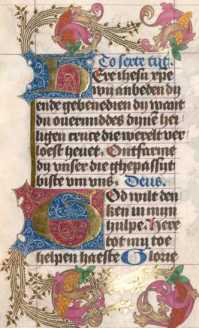 To sexte tijt.
Here ihesu xpe
wi anbeden dy
ende gebenedien dy want
du ouermiddes dyne hei
ligen cruce die werelt ver
loest heuet. Ontfarme
dy vnser die ghepassijt
biste vm vns. Deus.
God wilt den
ken in myn
hulpe. Here
tot my toe
helpen haeste Glorie